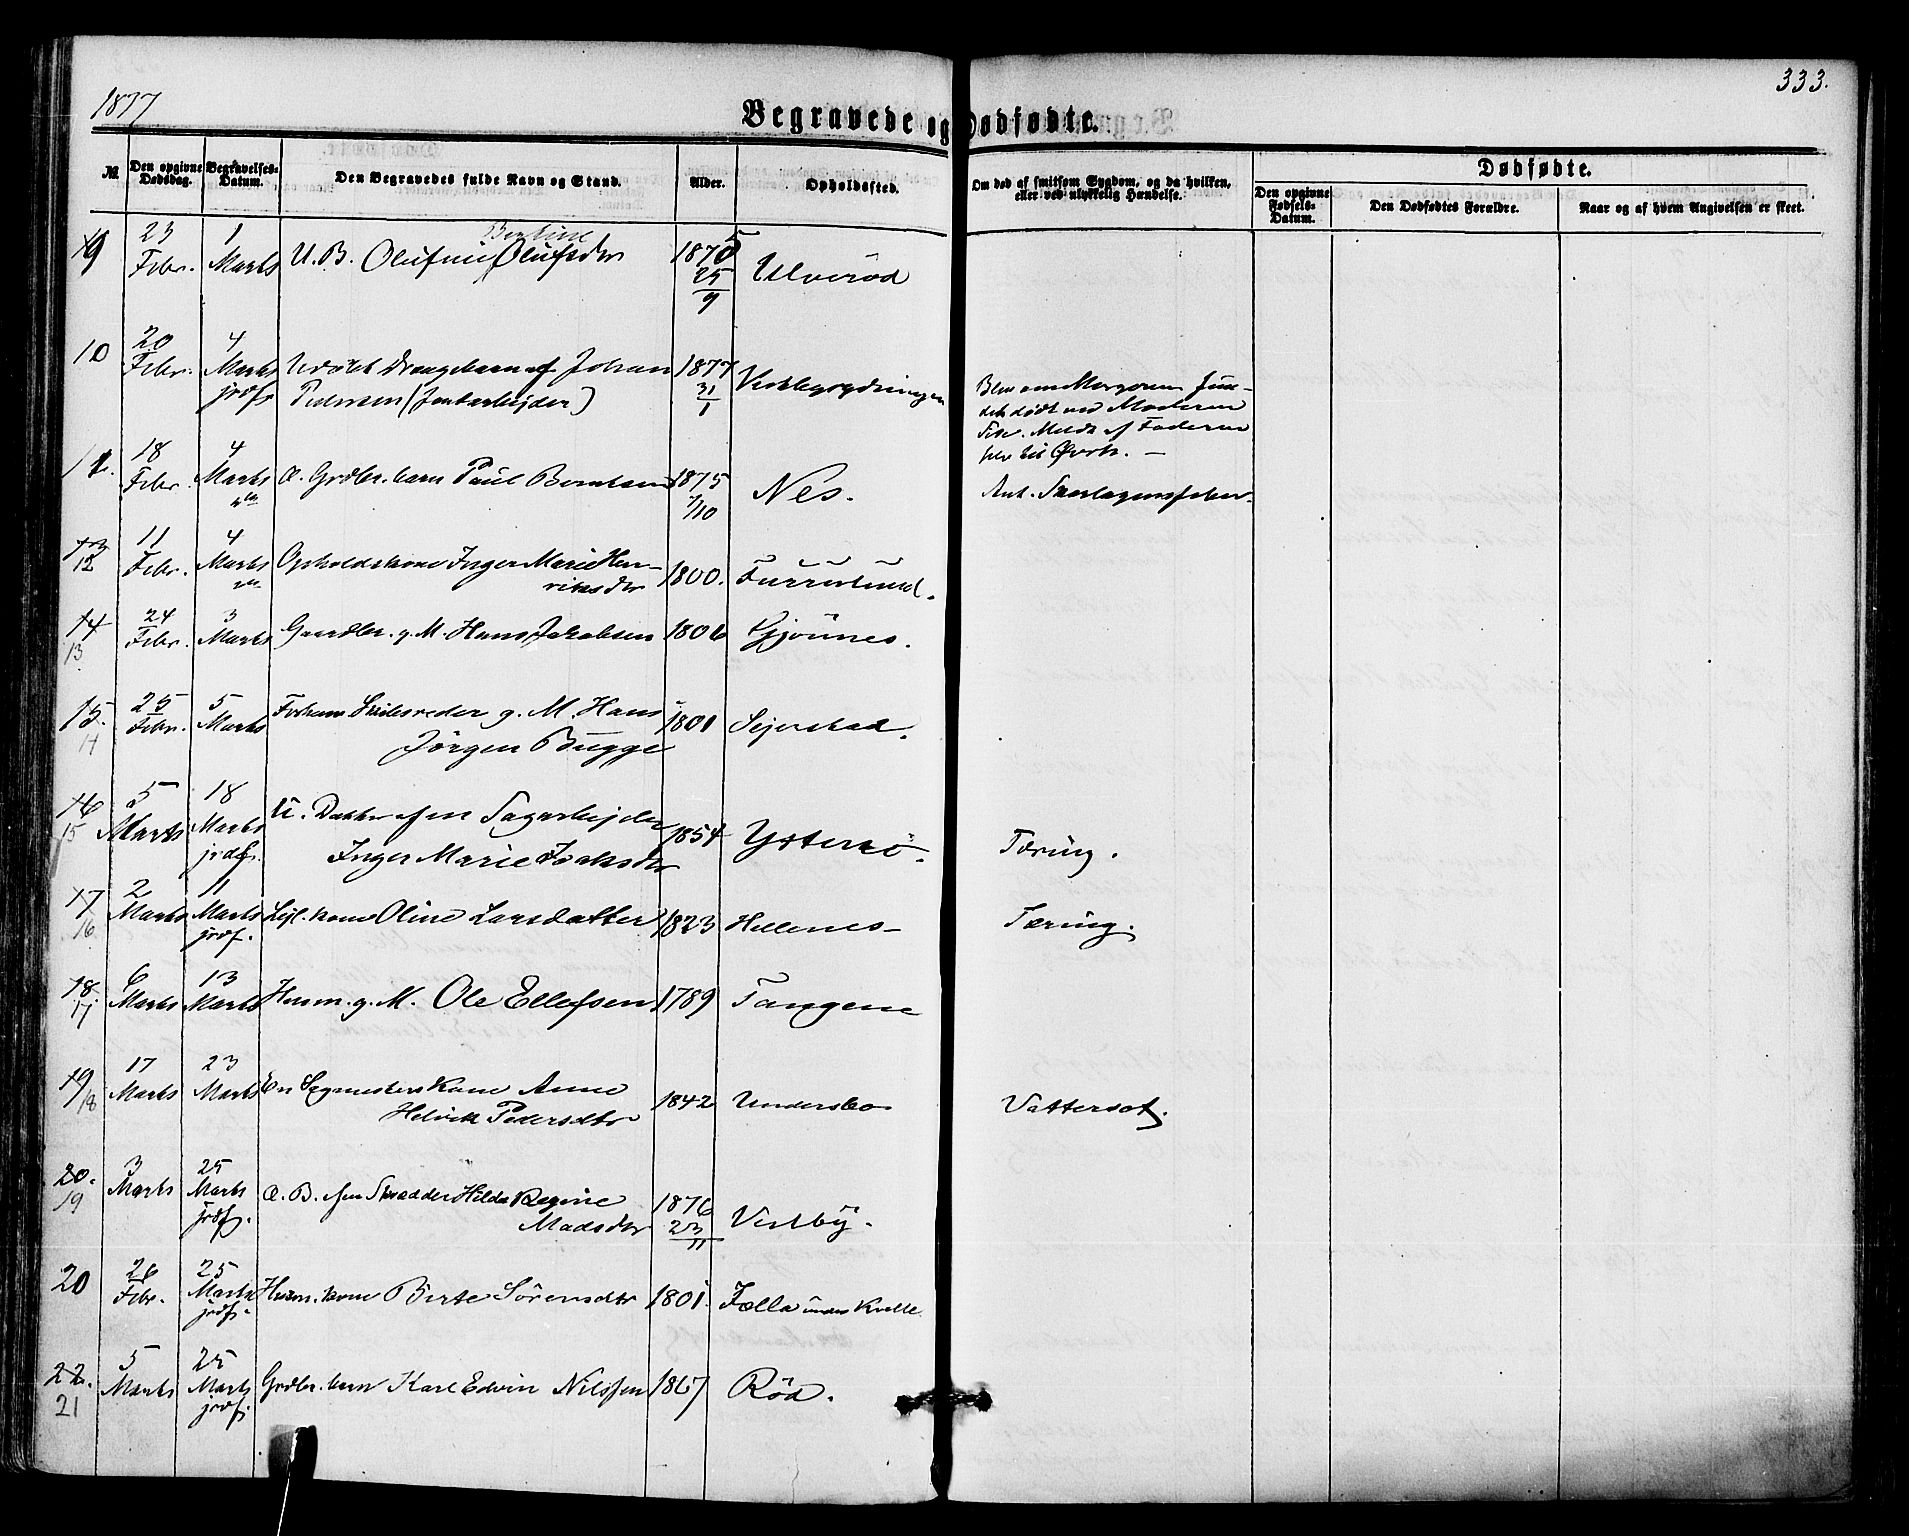 1877
333.
Begravede og Dødfødte.
№
Den opgivne Dødsdag.
Begravelses-Datum.
Den Begravedes fulde Navn og Stand.
Alder.
Opholdssted.
Om død af smitsom Sygdom, og da hvilken, eller ved ulykkelig Hændelse.
Dødfødte.
Den opgivne Fødsels-Datum.
Den Dødfødtes Forældre.
Naar og af hvem Angivelsen er skeet.
Bentine
9 23 Febr. 1 Marts U. B. Olufine Olufsdtr 1875 25/9 Ulverød
10 20 Febr. 4 Marts jrdf. Udøbt Drengebarn af Johan 1877 31/1
Pedersen (Jordarbejder) Verkbygdningen
Blev om Morgenen fun-
det dødt ved Moderens
Side. Meldt af Faderen
11. 18 Febr. 4 Marts Æ. Grdbr. barn Paul Berntsen 1875 7/10 Nes. Ant. Skarlagensfeber.
13 12 11 Febr. 4 Marts Opholdskone Inger Marie Hen-
riksdtr 1800. Furrulund.
14 13 24 Febr. 3 Marts Gaardbr. g. M. Hans Jakobsen 1806 Gjønnes.
15. 14 25 Febr. 5 Marts Forhenv. Skibsreder g. M. Hans
Jörgen Bugge 1801 Sejerstad.
16 15 5 Marts 18 Marts jrdf. U. Datter af en Sagarbejder
Inger Marie Isaksdtr 1854 Ysterø. Tæring.
17 16 2 Marts 11 Marts jrdf. Lejl. kone Oline Larsdatter 1823 Hellenes Tæring.
18. 17 6 Marts 13 Marts Husm. g. M. Ole Ellefsen 1789 Tangene
19 18 17 Marts 23 Marts En Sagmesters Kone Anne
Helvik Pedersdtr 1842 Undersbo Vattersot.
20. 19 3 Marts 25 Marts jrdf. Æ. B. af en Skrædder Hilda Regine
Madsdtr 1876 23/11 Vestby.
20 26 Febr. 25 Marts jrdf. Husm. kone Birte Sörensdtr 1801. Fælla under Kvelle
22. 21 5 Marts 25 Marts jrdf. Grdbr. barn Karl Edvin Nilssen 1867 Röd.